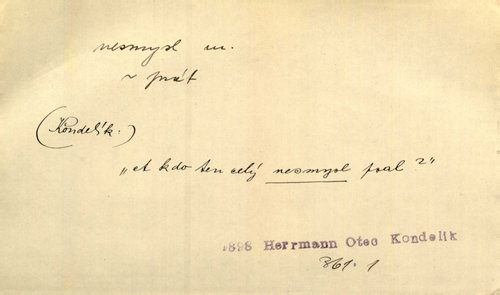 nesmysl m.
~ psát
(Kondelík:)
„et kdo ten celý nesmysl psal?"
1898 Herrmann Otec Kondelik
361. 1